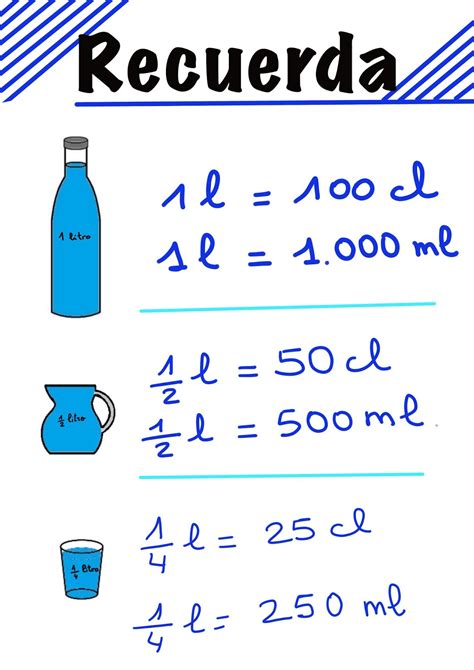 Recuerda
1 litro
1 l = 100 cl
1 l = 1.000 ml
1/2 litro
1/2 l = 50 cl
1/2 l = 500 ml.
1/4 litro
1/4 l = 25 cl
1/4 l = 250 ml